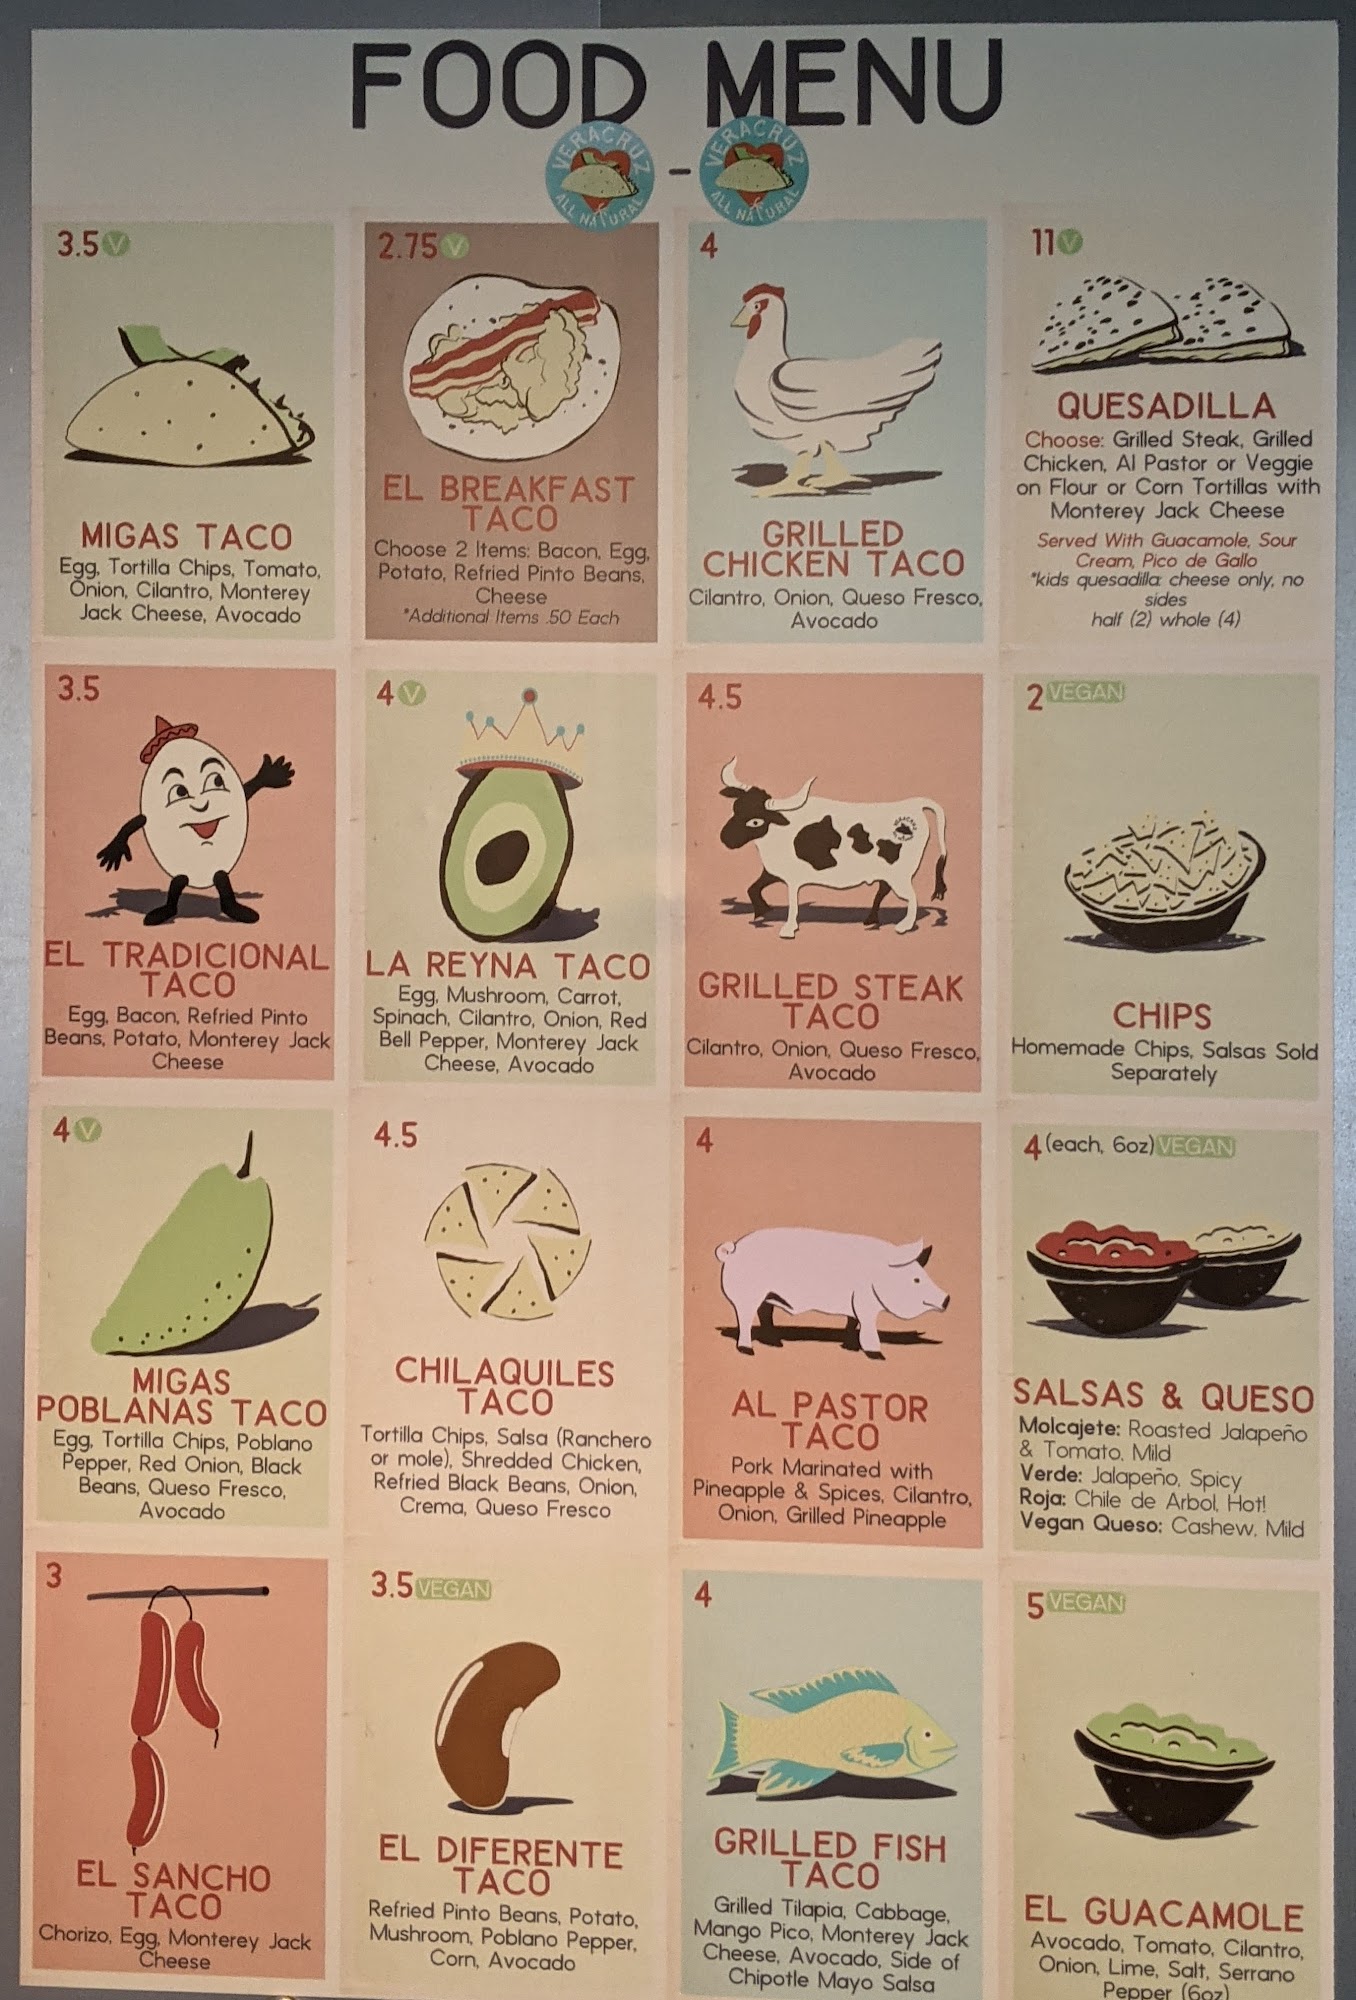 FOOD MENU
VERACRUZ
ALL NATURAL
-
VERACRUZ
ALL NATURAL
3.5 V
MIGAS TACO
Egg, Tortilla Chips, Tomato,
Onion, Cilantro, Monterey
Jack Cheese, Avocado
2.75 V
EL BREAKFAST
TACO
Choose 2 Items: Bacon, Egg,
Potato, Refried Pinto Beans,
Cheese
*Additional Items .50 Each
4
GRILLED
CHICKEN TACO
Cilantro, Onion, Queso Fresco,
Avocado
11 V
QUESADILLA
Choose: Grilled Steak, Grilled
Chicken, Al Pastor or Veggie
on Flour or Corn Tortillas with
Monterey Jack Cheese
Served With Guacamole, Sour
Cream, Pico de Gallo
*kids quesadilla: cheese only, no
sides
half (2) whole (4)
3.5
EL TRADICIONAL
TACO
Egg, Bacon, Refried Pinto
Beans, Potato, Monterey Jack
Cheese
4 V
LA REYNA TACO
Egg, Mushroom, Carrot,
Spinach, Cilantro, Onion, Red
Bell Pepper, Monterey Jack
Cheese, Avocado
4.5
GRILLED STEAK
TACO
Cilantro, Onion, Queso Fresco,
Avocado
2 VEGAN
CHIPS
Homemade Chips, Salsas Sold
Separately
4 V
MIGAS
POBLANAS TACO
Egg, Tortilla Chips, Poblano
Pepper, Red Onion, Black
Beans, Queso Fresco,
Avocado
4.5
CHILAQUILES
TACO
Tortilla Chips, Salsa (Ranchero
or mole), Shredded Chicken,
Refried Black Beans, Onion,
Crema, Queso Fresco
4
AL PASTOR
TACO
Pork Marinated with
Pineapple & Spices, Cilantro,
Onion, Grilled Pineapple
4 (each, 6oz) VEGAN
SALSAS & QUESO
Molcajete: Roasted Jalapeño
& Tomato, Mild
Verde: Jalapeño, Spicy
Roja: Chile de Arbol, Hot!
Vegan Queso: Cashew, Mild
3
EL SANCHO
TACO
Chorizo, Egg, Monterey Jack
Cheese
3.5 VEGAN
EL DIFERENTE
TACO
Refried Pinto Beans, Potato,
Mushroom, Poblano Pepper,
Corn, Avocado
4
GRILLED FISH
TACO
Grilled Tilapia, Cabbage,
Mango Pico, Monterey Jack
Cheese, Avocado, Side of
Chipotle Mayo Salsa
5 VEGAN
EL GUACAMOLE
Avocado, Tomato, Cilantro,
Onion, Lime, Salt, Serrano
Pepper (6oz)